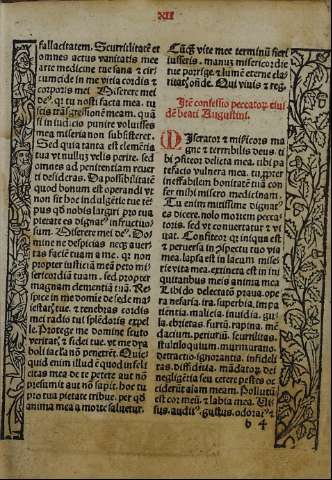 XII
fallacitatem. Scurrilitatē et
omnes actus vanitatis mee
arte medicine tue sana et cir
cuncide in me vitia cordis et
corporis mei Miserere mei
de⁹. qꝛ tu nosti facta mea. tu
scis trāsgressionē meam. quā
si in iudicio punire voluisses
mea miseria non subsisteret.
Sed quia tanta est clemētia
tua vt nullū velis perire. sed
omnes ad penitentiam reuer
ti desideras. Da possibilitatē
quod bonum est operandi vt
non sit hoc indulgētie tue tē⸗
pus qḋ nobis largiri pro tua
pietate es dignat⁹ infructuo⸗
sum. Miserere mei de⁹. Do⸗
mine ne despicias neqꝫ auer⸗
tas faciē tuam a me. qꝛ non
propter iusticiā meā peto mi⸗
sericordiā tuam. sed propter
magnam clementiā tuā. Re⸗
spice in me domīe de sede ma⸗
iestatꝭ tue. et tenebras cordis
mei radio tui splēdoris expel
le. Protege me domine scuto
veritatꝭ et fidei tue. vt me dya
boli iacula nō penetrēt. Quic⸗
quid enim illud ē quod infeli
citas mea de te petere aut nō
presumit aut nō sapit. hoc tu
pro tua pietate tribue. per qḋ
anima mea a morte saluetur.
Cūqꝫ vite mee terminū fieri
iusseris. manū misericordie
tue porrige. et lumē eterne cla
ritatꝭ oñde. Qui viuis et reg.
Itē confessio peccatoꝝ eius
dē beati Augustini.
Miserator et misericors ma
gne et terribilis deus. ti
bi cōfiteor delicta mea. tibi pa
tefacio vulnera mea. tu propter
ineffabilem bonitatē tuā con
fer mihi misero medicinam.
Tu enim mitissime dignat⁹
es dicere. nolo mortem pecca
toris. sed vt conuertatur et vi
uat. Confiteor qꝛ iniqua est
et peruersa in cōspectu tuo vita
mea. lapsa est in lacum miseri
e vita mea. extincta est in ini
quitatibus meis anima mea
Libido delectatio praua. ope
ra nefaria. ira. superbia. impa
tientia. malicia. inuidia. gu
la. ebrietas. furtū. rapina. mē
dacium. periuriū. scurrilitas.
stultiloquium. murmuratio.
detractio. ignorantia. infidelī
tas. diffidētia. mādatoꝝ dei
negligētia seu cetere pestes oc
ciderūt aīam meam. Pollutū
est cor meū. et labia mea. Vi⸗
sus. audit⁹. gustus. odorat⁹ et
b 4